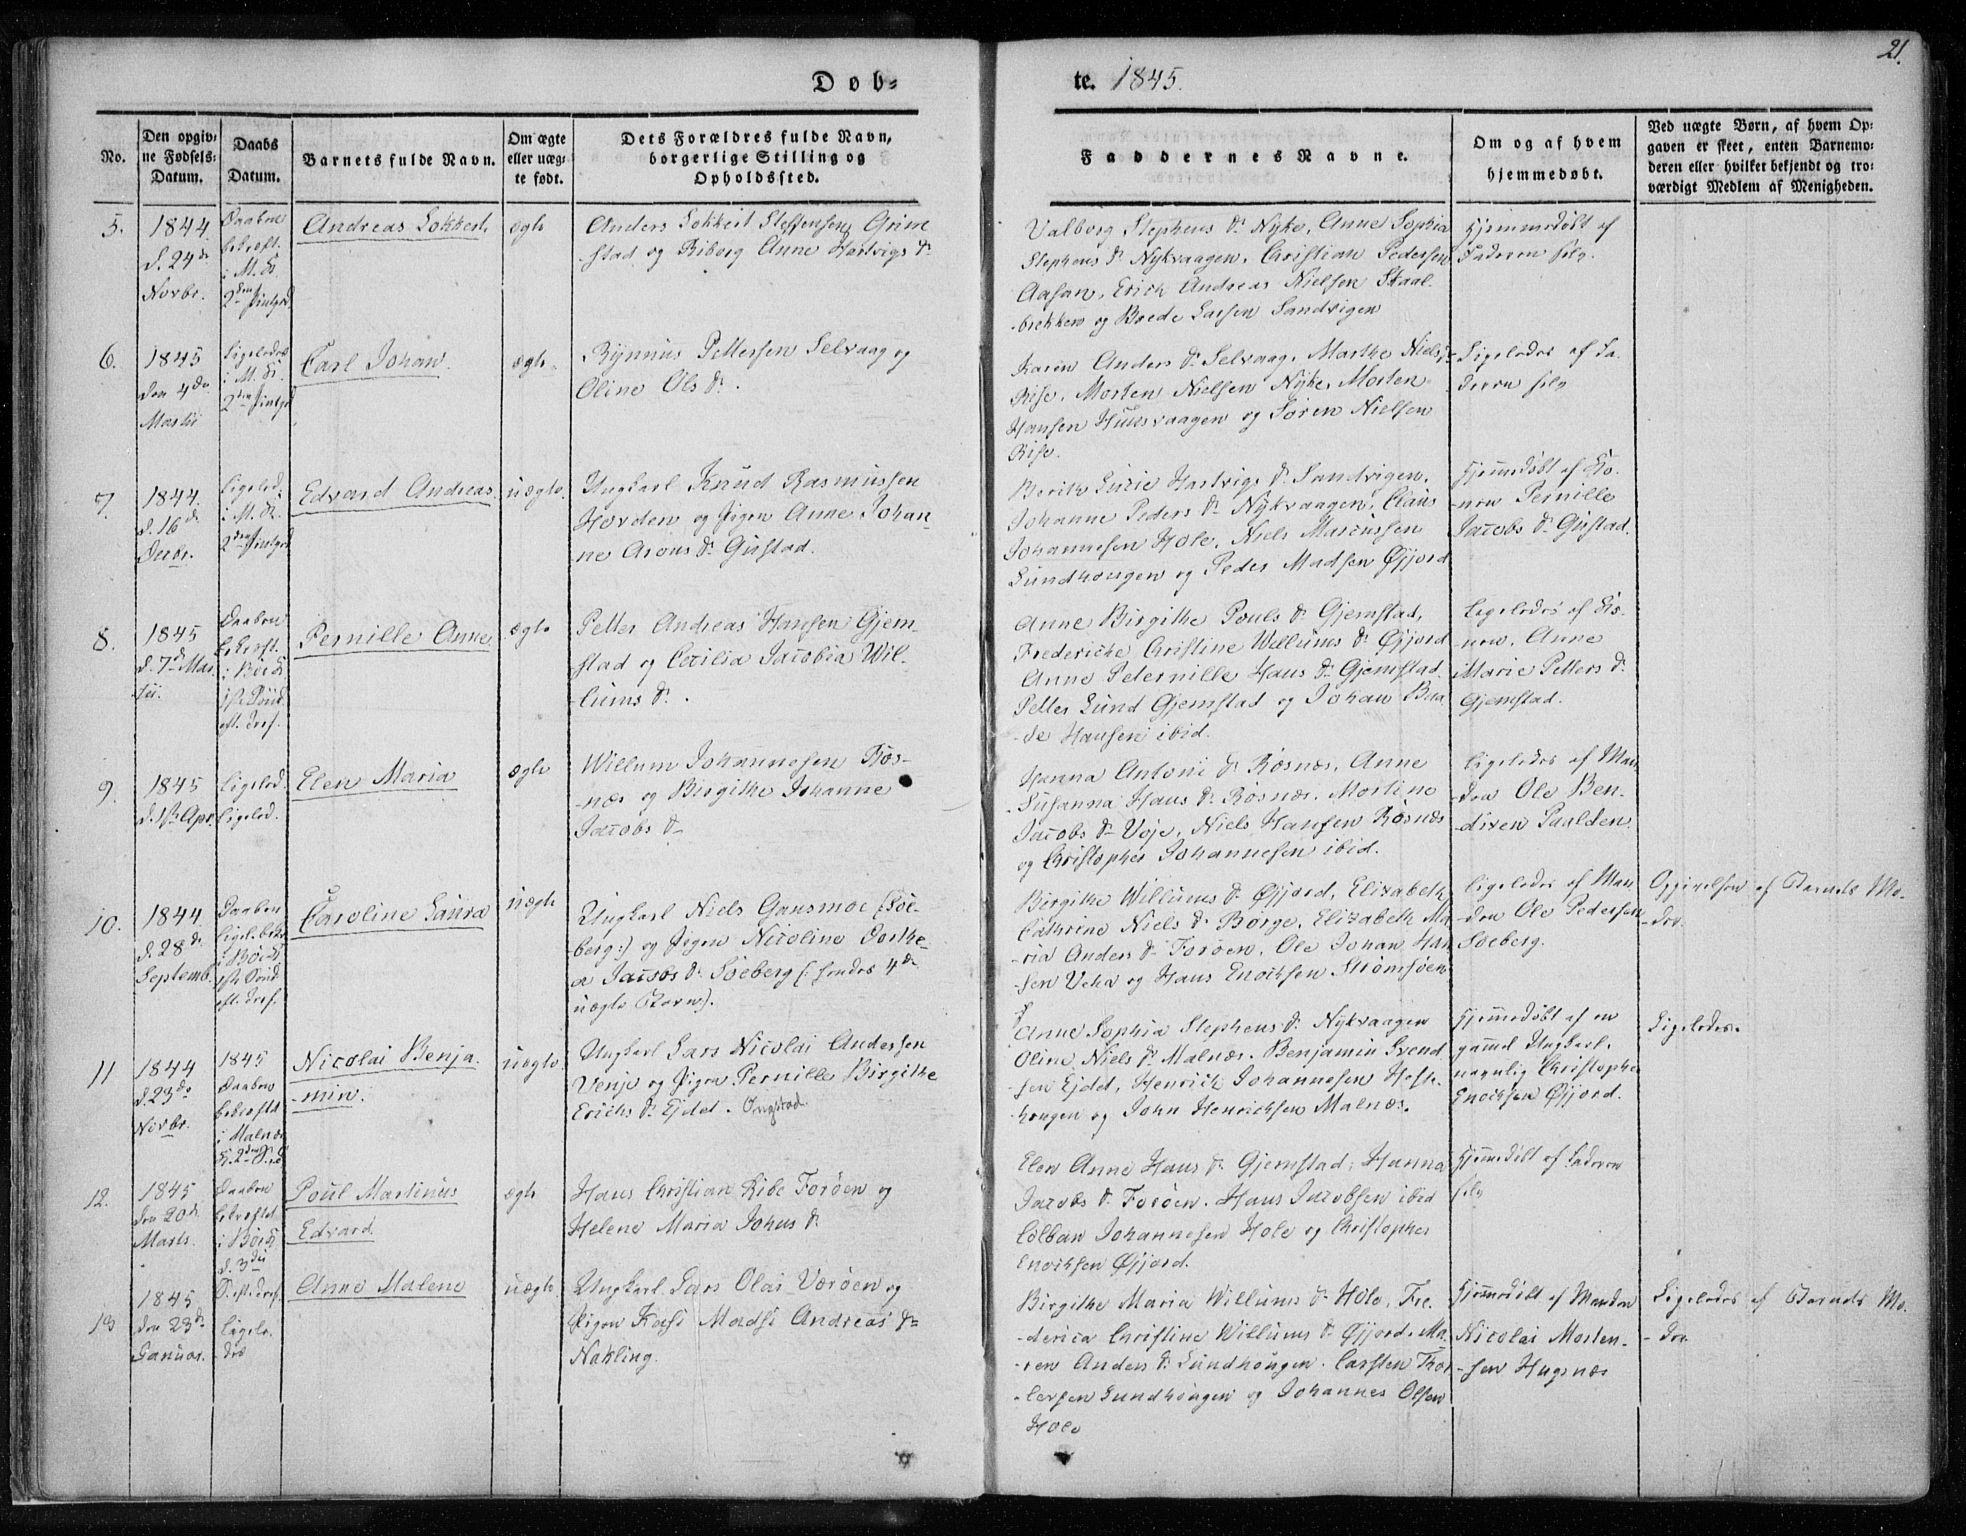 21.
Døb-
te. 1845.
No.
Den opgiv-
ne Fødsels-
Datum.
Daabs
Datum.
Barnets fulde Navn.
Om ægte
eller uæg-
te født.
Dets Forældres fulde Navn,
borgerlige Stilling og
Opholdssted.
Faddernes Navne.
Om og af hvem
hjemmedøbt.
Ved uægte Børn, af hvem Op-
gaven er skeet, enten Barnemo-
deren eller hvilket bekjendt og tro-
værdigt Medlem af Menigheden.
5.
1844
d. 24de
Novbr.
Daaben
bekræft.
i M. K.
2den Pintsed
Andreas Lokkert,
ægte
Anders Lokkert Steffensen Grim
-stad og Riborg Anne Hartvigs Dr
Valborg Stephens Dr Nyke, Anne Sophia
Stephens Dr Nykvaagen, Christian Pedersen
Aasan, Erich Andreas Nielsen Skaal-
-brekken og Brede Larsen Sandvigen
Hjemmedøbt af
Faderen selv.
6.
1845
den 4de
Martii
Ligeledes
i M. K.
2den Pintsed
Carl Johan.
ægte.
Rynnus Pettersen Selvaag og
Oline Ols Dr.
Karen Anders Dr Selvaag, Marthe Niels
Rise, Morten Nielsen Nyke, Morten
Hansen Huusvaagen og Søren Nielsen
Rise.
Ligeledes af Fa-
deren selv
7.
1844
d. 16de
Decbr.
Ligeled.
i M. K.
2den Pintsed
Edvard Andreas
uægte.
Ungkarl Knud Rasmussen
Horden og Pigen Anne Johan-
ne Arons Dr Gustad.
Berith Lucie Hartvigs Dr Sandvigen,
Johanne Peders Dr Nykvaagen, Claus
Johannesen Hole, Niels Marcussen
Sundhougen og Peder Madsen Øjjord
Hjemmedøbt af Ko-
nen Pernille
Jacobs Dr Gustad.
8.
1845
d. 7de Mar-
tii.
Daaben
bekræft.
i Bøe K
1ste Sønd.
eft. Tref.
Pernille Anne
ægte
Petter Andreas Hansen Gjem-
-stad og Cecilia Jacobia Wil-
-lums Dr.
Anne Birgithe Pouls Dr Gjemstad,
Frederiche Christine Willums Dr Øjjord
Anne Peternille Hans Dr Gjemstad
Petter Lund Gjemstad og Johan Bua
-de Hansen ibid.
Ligeledes af Ko-
nen, Anne
Marie Petters Dr
Gjemstad.
9.
1845
d. 1ste Apr.
Ligeled.
Ligeled.
Elen Maria
ægte
Willum Johannesen Røs-
-næs og Birgithe Johanne
Jacobs Dr
Hanna Antoni Dr Røsnæs, Anne
Susanna Hans Dr Røsnæs, Martine
Jacobs Dr Veje, Niels Hansen Røsnæs
og Christopher Johannesen ibid.
Ligeledes af Man-
den Ole Ben-
-dixen Saalden.
10.
1844
d. 28de
Septemb.
Daaben
ligel. bekr.
i Bøe K
1ste Sønd
eft. Tref.
Caroline Laura
uægte
Ungkarl Niels Gausmoe (Søe-
berg:) og Pigen Nicoline Dorthe-
a Jacobs Dr Søeberg (: hendes 4de
uægte Barn).
Birgithe Willums Dr Øjjord, Elizabeth
Cathrine Niels Dr Børge, Elizabeth Ma
-ria Anders Dr Forøen, Ole Johan Han
-sen Veha og Hans Enochsen Strømsøen
Ligeledes af Man
-den Ole Pedersen
Søeberg.
Opgivelsen af Barnets Mo-
-der.
11
1844
d. 23de
Novbr.
1845
Daaben
bekræftet
i Malnæs
K. 2den
Nicolai Benja
-min.
uægte.
Ungkarl Lars Nicolai Andersen
Venje og Pigen Pernille Birgithe
Erichs Dr Ejdet. Ongstad.
Anne Sophia Stephens Dr Nykvaagen
Oline Niels Dr Malnæs, Benjamin Svend
-sen Ejdet, Henrich Johannesen Heste-
-hougen og John Henrichsen Malnæs.
Hjemmedøbt af en
gammel Ungkarl,
navnlig Christopher
Enochsen Øjjord.
Ligeledes.
12.
1845
den 20de
Marts.
Daaben
bekræftet
i Bøe K
d. 3die
S. eft. Tref.
Poul Martinus
Edvard
ægte
Hans Christian Ribe Forøen og
Helene Maria Johns Dr
Elen Anne Hans Dr Gjemstad, Hanna
Jacobs Dr Forøen, Hans Jacobsen ibid
Colban Johannesen Hole og Christopher
Enochsen Øjjord.
Hjemmedøbt af Faderen
selv
13
1845
den 23de
Januar.
Ligele-
des
Anne Malene
uægte.
Ungkarl Lars Olai Værøen og
Pigen Kasi Madsi Andreas Dr
Nakling.
Birgithe Maria Willums Dr Hole, Fre-
-derica Christine Willums Dr Øjjord, Ma-
-ren Anders Dr Sundhougen, Carsten Thor
-lersen Sundhougen og Johannes Olsen
Hole
Hjemmedøbt af Manden
Nicolai Morten-
-sen Hugnæs
Ligeledes af Barnets Mo-
-der